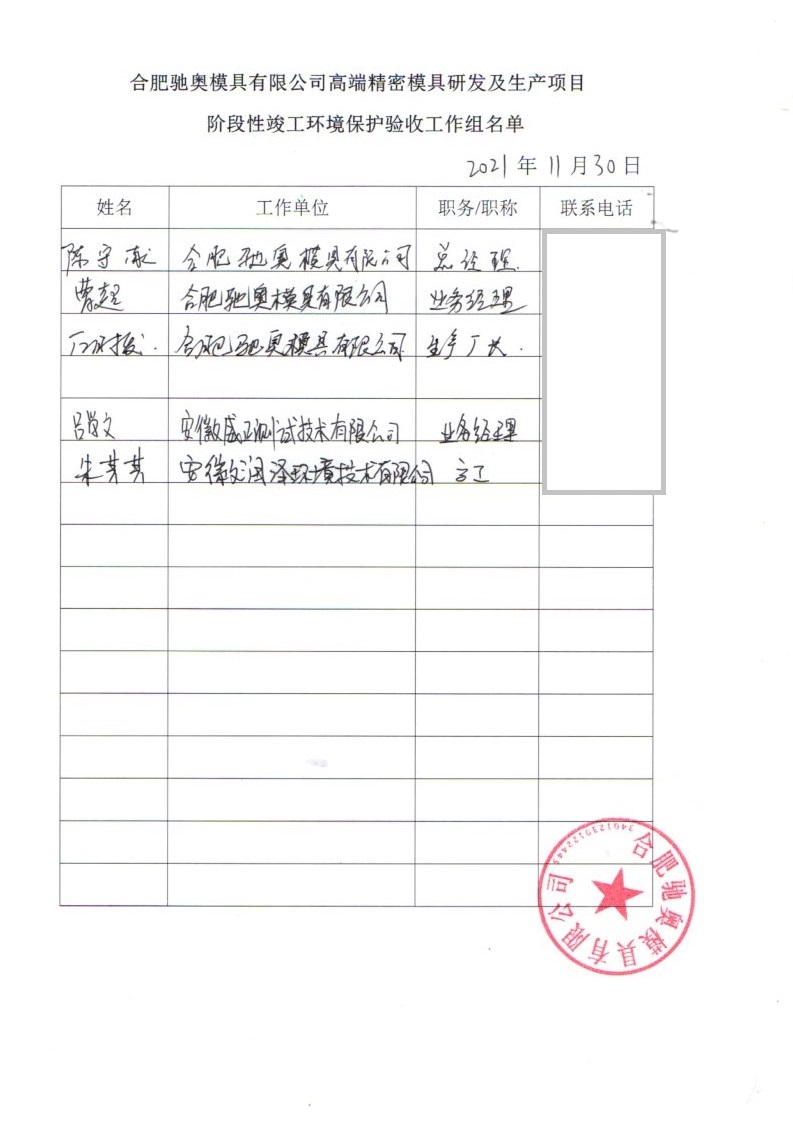 合肥驰奥模具有限公司高端精密模具研发及生产项目
阶段性竣工环境保护验收工作组名单
2021 年 11 月 30 日
姓名 工作单位 职务/职称 联系电话
陈守 合肥驰奥模具有限公司 总经理
曹超 合肥驰奥模具有限公司 业务经理
合肥驰奥模具有限公司 生产厂长
吕学文 安徽威正测试技术有限公司 业务经理
朱芳其 安徽汶润泽环境技术有限公司 高工
合肥驰奥模具有限公司